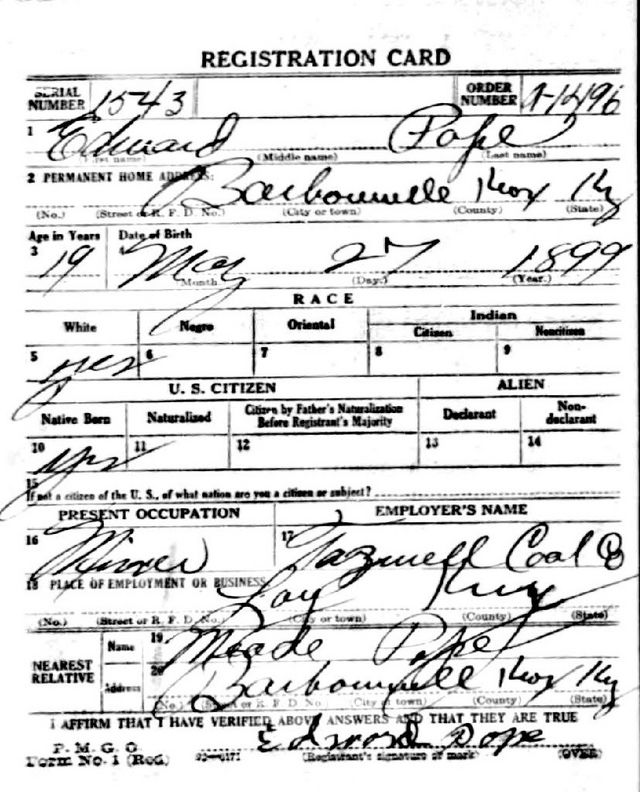 REGISTRATION CARD
SERIAL NUMBER 1543 ORDER NUMBER A-1496
1 Edward Pope
(First name) (Middle name) (Last name)
2 PERMANENT HOME ADDRESS: Barbourville Knox Ky
(No.) (Street or R. F. D. No.) (City or town) (County) (State)
Age in Years Date of Birth
3 19 4 May 27 1899
(Month.) (Day.) (Year.)
RACE
White Negro Oriental Indian
Citizen Noncitizen
5 yes 6 7 8 9
U. S. CITIZEN ALIEN
Native Born Naturalized Citizen by Father's Naturalization Before Registrant's Majority Declarant Non-declarant
10 yes 11 12 13 14
15 If not a citizen of the U. S., of what nation are you a citizen or subject?
PRESENT OCCUPATION EMPLOYER'S NAME
16 Miner 17 Coal Co
18 PLACE OF EMPLOYMENT OR BUSINESS
(No.) (Street or R. F. D. No.) (City or town) (County) (State)
NEAREST RELATIVE
Name 19 Meade Pope
Address 20 Barbourville Knox Ky
(No.) (Street or R. F. D. No.) (City or town) (County) (State)
I AFFIRM THAT I HAVE VERIFIED ABOVE ANSWERS AND THAT THEY ARE TRUE
P. M. G. O.
Form No. 1 (Red) Edward Pope
(Registrant's signature or mark) (OVER)